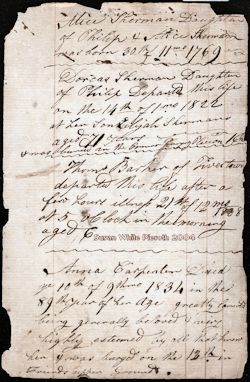 Alice Sherman Daughter
of Philip & Alice Sherman
was born 30th 11mo 1769
Dorcas Sherman Daughter
of Philip Departed this life
on the 14th of 1mo 1822
at her Son Elijah Shermans
aged 71 years
& was buried in the
Thomas Barker of Tivertown
departed this life after a
few hours illness 21st of 12mo
at 5 oClock in the morning
aged
Susan White Pieroth 2004
Anna Carpenter Died
ye 10th of 9mo 1834 in the
89th year of her Age greatly
being generally beloved & very
highly esteemed by all that knew
her & was buryed on the 12th in
Friends upper Ground